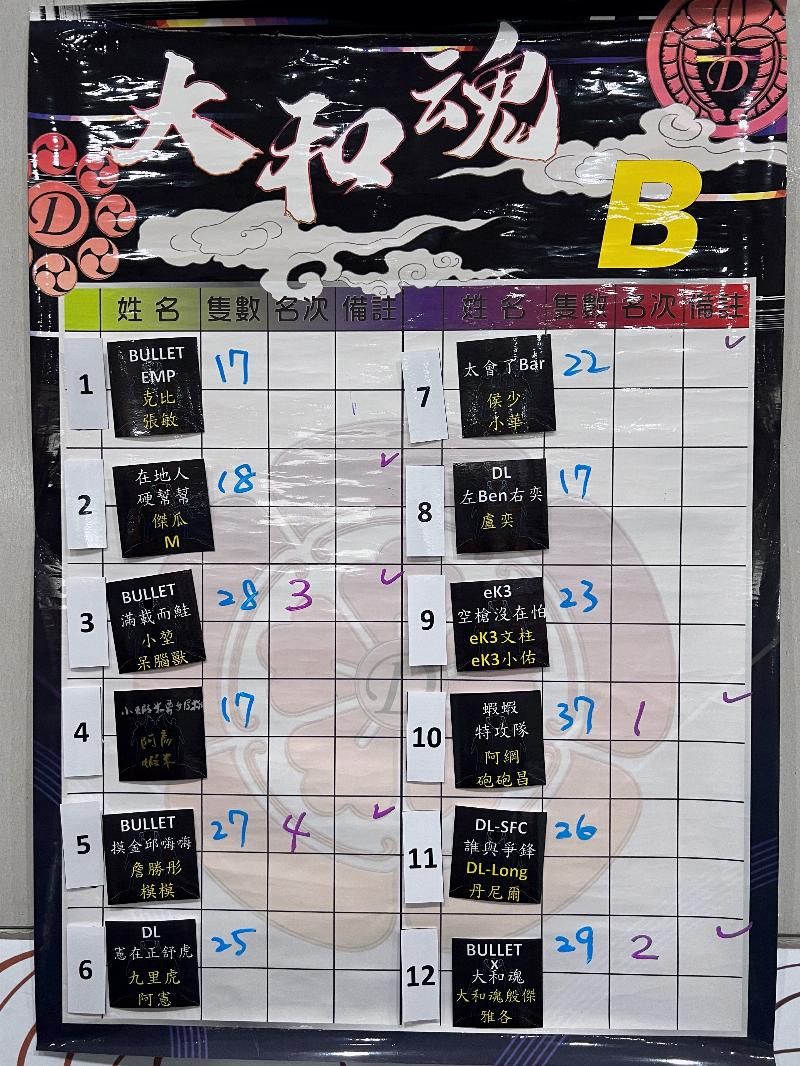 大和魂
D
D
B
姓名 隻數 名次 備註 姓名 隻數 名次 備註
1
BULLET
EMP
克比
張敏
17
2
在地人
硬幫幫
傑瓜
M
18
✓
3
BULLET
滿載而鮭
小堃
呆腦獸
28
3
✓
4
17
5
BULLET
摸金邱嗨嗨
詹勝彤
模模
27
4
✓
6
DL
憲在正舒虎
九里虎
阿憲
25
7
太會了Bar
侯少
小華
22
✓
8
DL
左Ben右奕
盧奕
17
9
eK3
空槍沒在怕
eK3文柱
eK3小佑
23
10
蝦蝦
特攻隊
阿綱
砲砲昌
37
1
✓
11
DL-SFC
誰與爭鋒
DL-Long
丹尼爾
26
12
BULLET
X
大和魂
大和魂殷傑
雅各
29
2
✓
D